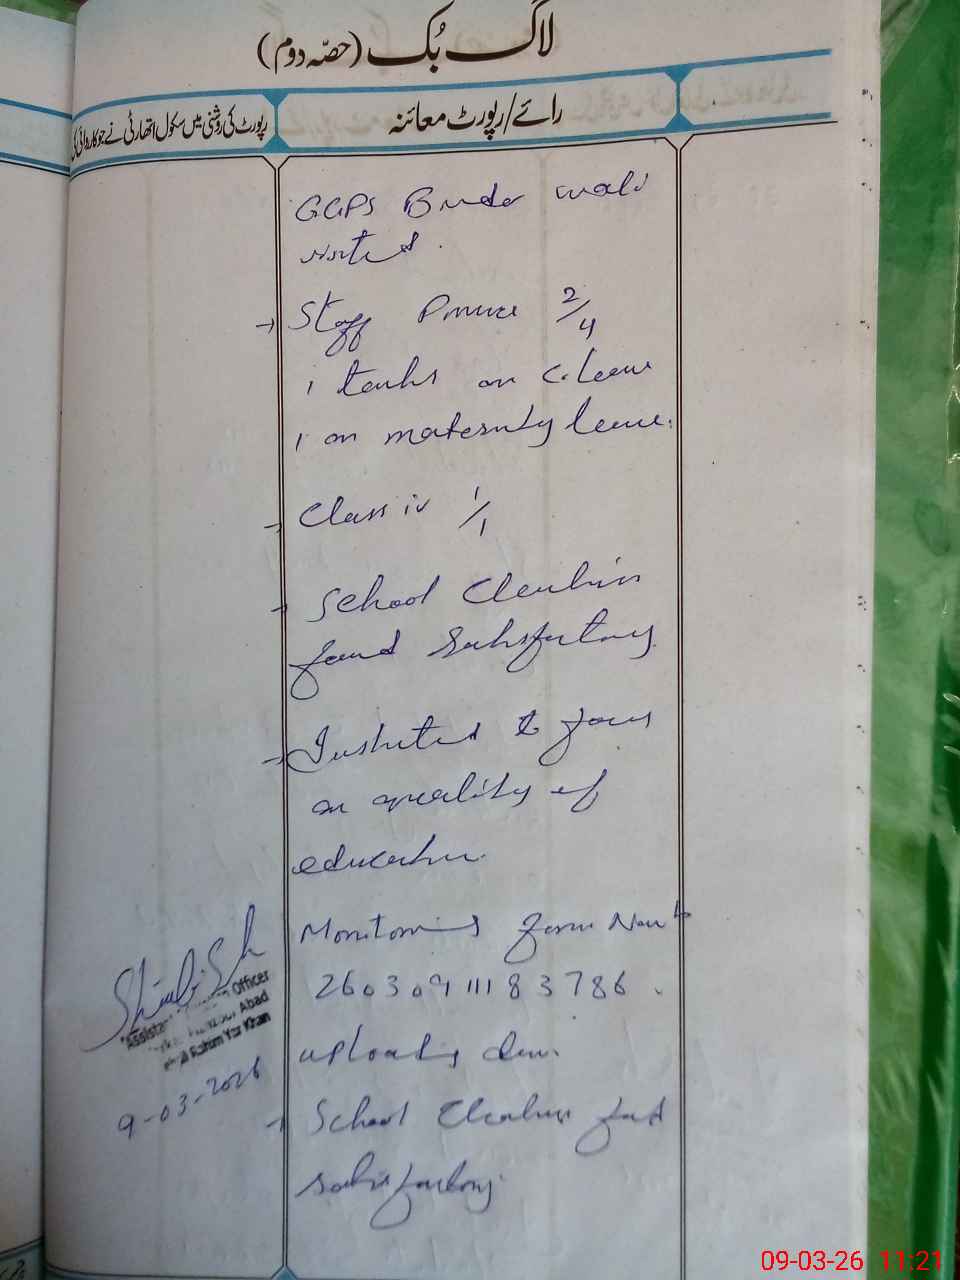 لاگ بُک (حصّہ دوم)
رائے/رپورٹ معائنہ
رپورٹ کی روشنی میں سکول اتھارٹی نے جو کارروائی کی
GGPS Binder wali
visited.
→ Staff Presence 2/4
1 teacher on C. leave
1 on maternity leave.
→ Class iv 1/1
→ School Cleanliness
found Satisfactory.
→ Instructed to focus
on quality of
education.
Monitoring form
26030911183786.
uploading done.
→ School Cleanliness found
satisfactory.
Assistant Officer
Abad
Rahim Yar Khan
9-03-2026
09-03-26 11:21